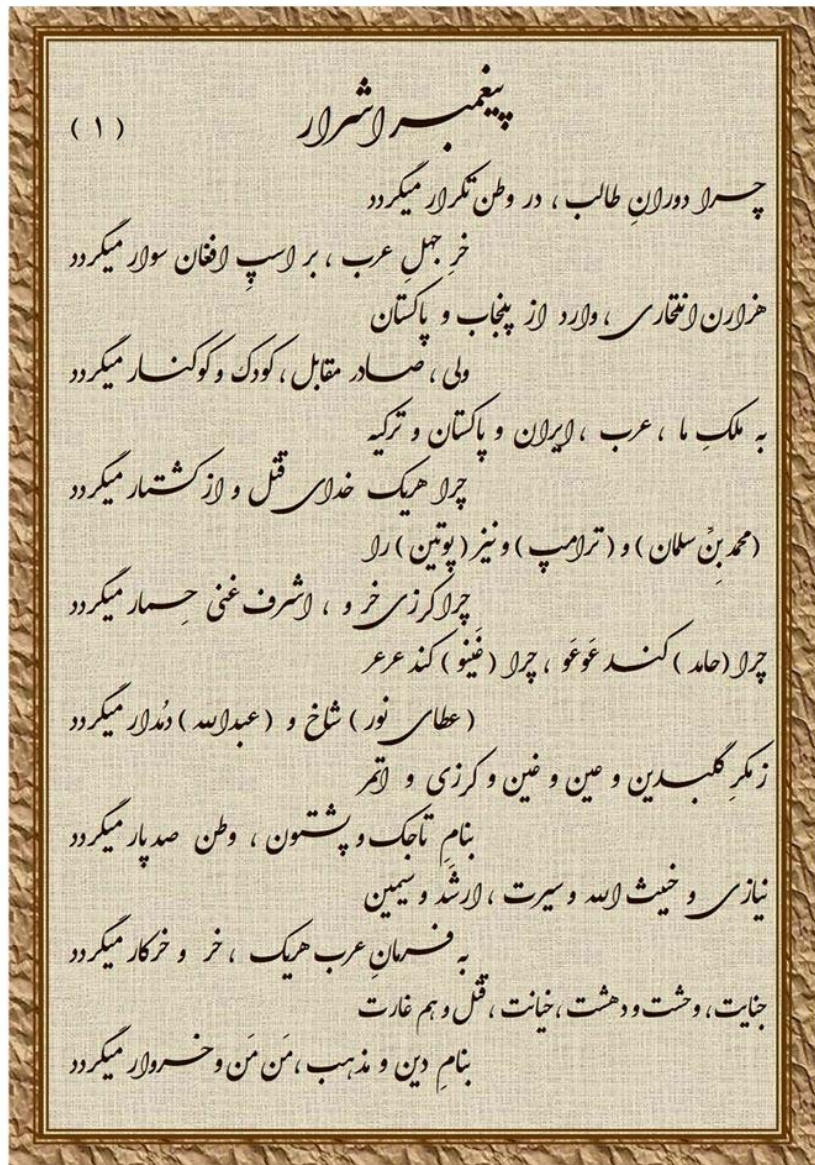 پیغمبر اشرار
( ۱ )
چرا دورانِ طالب ، در وطن تکرار میگردد
خرِ جهلِ عرب ، بر اسپِ افغان سوار میگردد
هزارن انتحاری ، وارد از پنجاب و پاکستان
ولی ، صادر مقابل ، کودک و کوکنار میگردد
به ملکِ ما ، عرب ، ایران و پاکستان و ترکیه
چرا هریک خدای قتل و از کشتار میگردد
(محمد بنِّ سلمان) و (ترامپ) و نیز (پوتین) را
چرا کرزی خر و ، اشرف غنی حمار میگردد
چرا (حامد) کند عَوعَو ، چرا (غَینو) کند عرعر
(عطای نور) شاخ و (عبدالله) دُمدار میگردد
ز مکرِ گلبدین و عین و غین و کرزی و اتمر
بنامِ تاجک و پشتون ، وطن صد پار میگردد
نیازی و خبیث الله و سیرت ، ارشَد و سیمین
به فرمانِ عرب هریک ، خر و خرکار میگردد
جنایت، وحشت و دهشت، خیانت ، قتل و هم غارت
بنامِ دین و مذهب ، مَن مَن و خروار میگردد